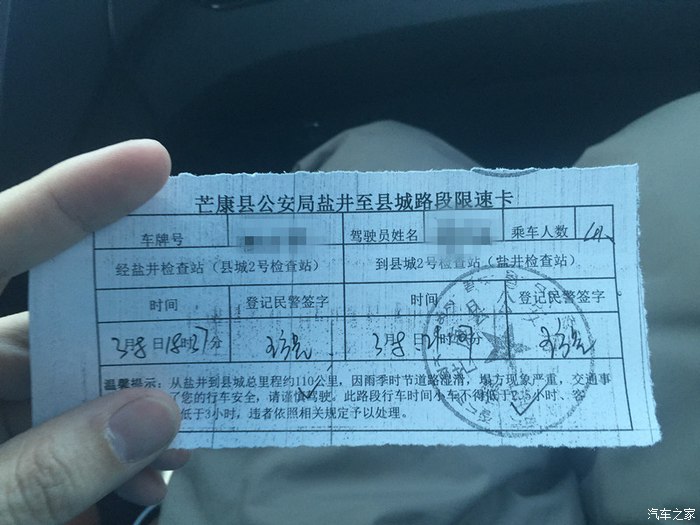 芒康县公安局盐井至县城路段限速卡
车牌号 驾驶员姓名 乘车人数
经盐井检查站（县城2号检查站） 到县城2号检查站（盐井检查站）
时间 登记民警签字 时间 登记民警签字
3月8日18时27分 3月8日21时 分
温馨提示：从盐井到县城总里程约110公里，因雨季时节道路湿滑，塌方现象严重，交通事
了您的行车安全，请谨慎驾驶。此路段行车时间小车不得低于2.5小时、客
低于3小时，违者依照相关规定予以处理。
汽车之家